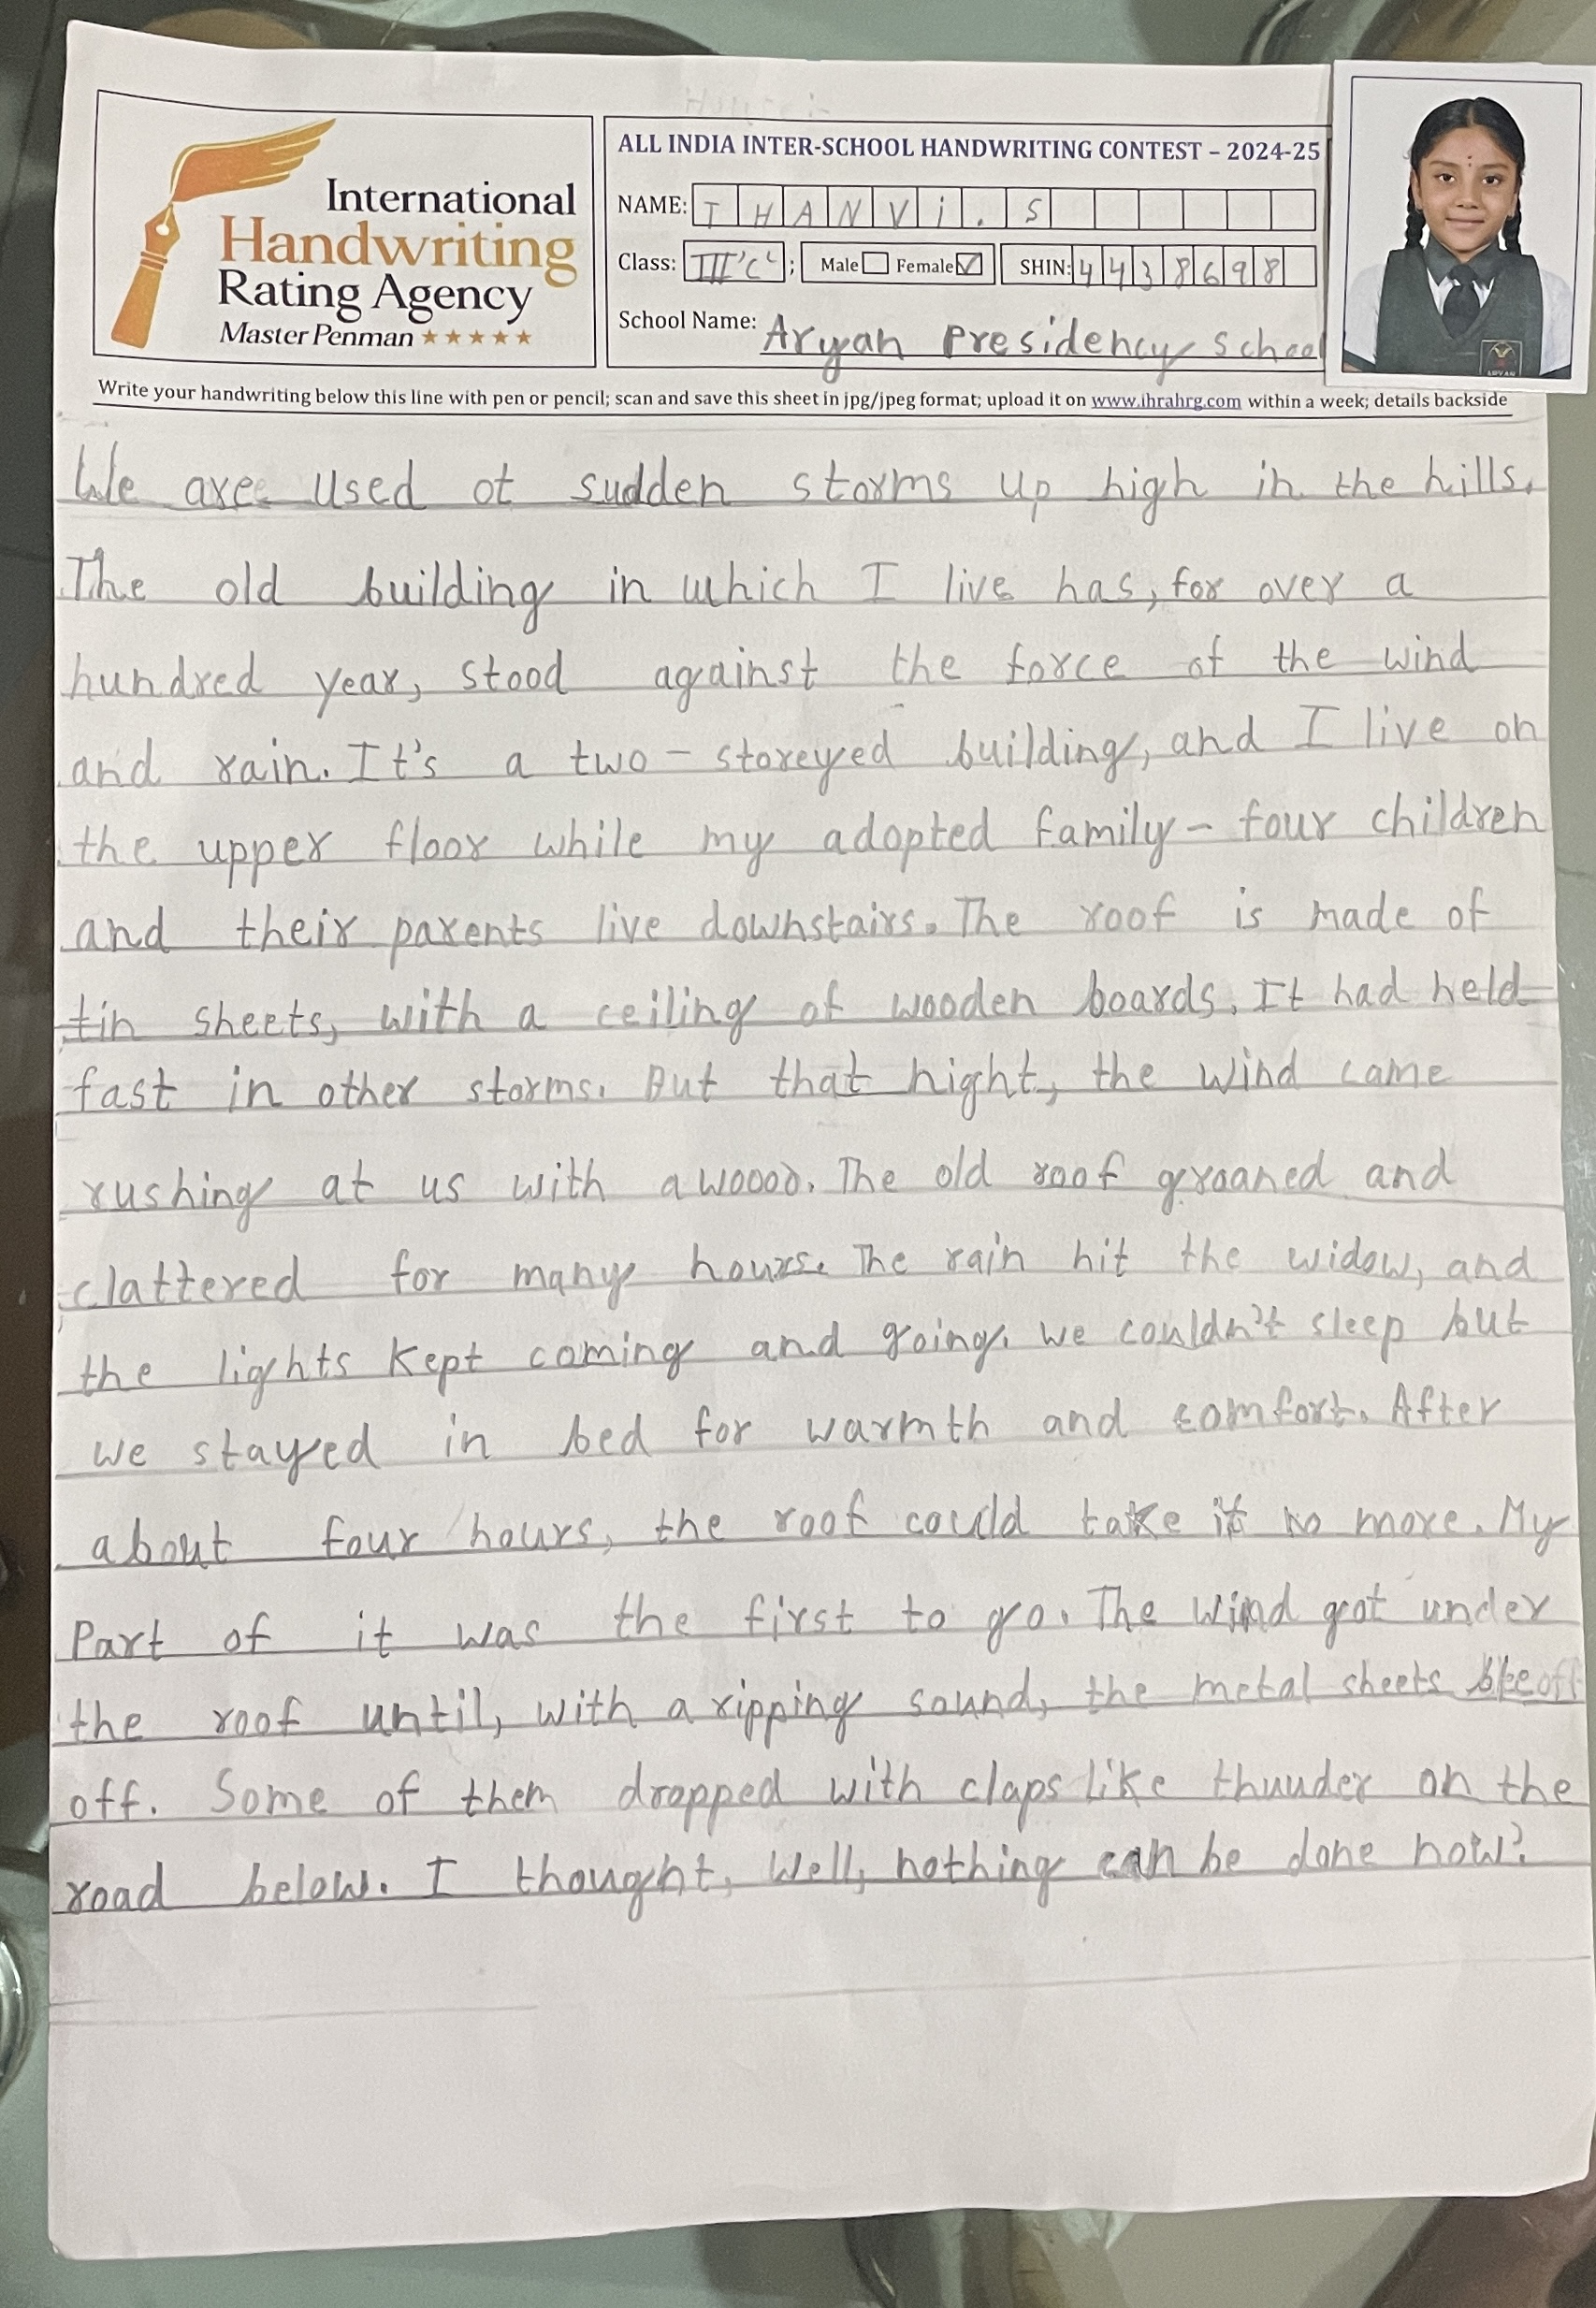 International
Handwriting
Rating Agency
Master Penman
ALL INDIA INTER-SCHOOL HANDWRITING CONTEST – 2024-25
NAME: THANVi.S
Class: III'C' ; Male Female ✓ SHIN: 4438698
School Name: Aryan Presidency School
Write your handwriting below this line with pen or pencil; scan and save this sheet in jpg/jpeg format; upload it on www.ihrahrg.com within a week; details backside
We are used ot sudden storms up high in the hills.
The old building in which I live has, for over a
hundred year, stood against the force of the wind
and rain. It's a two – storeyed building, and I live on
the upper floor while my adopted family – four children
and their parents live downstairs. The roof is made of
tin sheets, with a ceiling of wooden boards. It had held
fast in other storms. But that night, the wind came
rushing at us with a woooo. The old roof graaned and
clattered for many hours. The rain hit the widow, and
the lights kept coming and going. we couldn't sleep but
we stayed in bed for warmth and comfort. After
about four hours, the roof could take it no more. My
Part of it was the first to go. The wind got under
the roof until, with a ripping sound, the metal sheets
off. Some of them dropped with claps like thuuder on the
road below. I thought, Well, nothing can be done now?